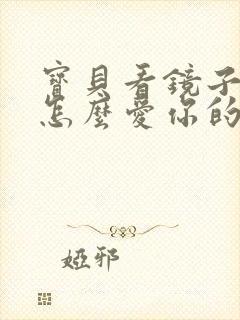 寶貝看鏡子
怎麼愛你的
婭邪